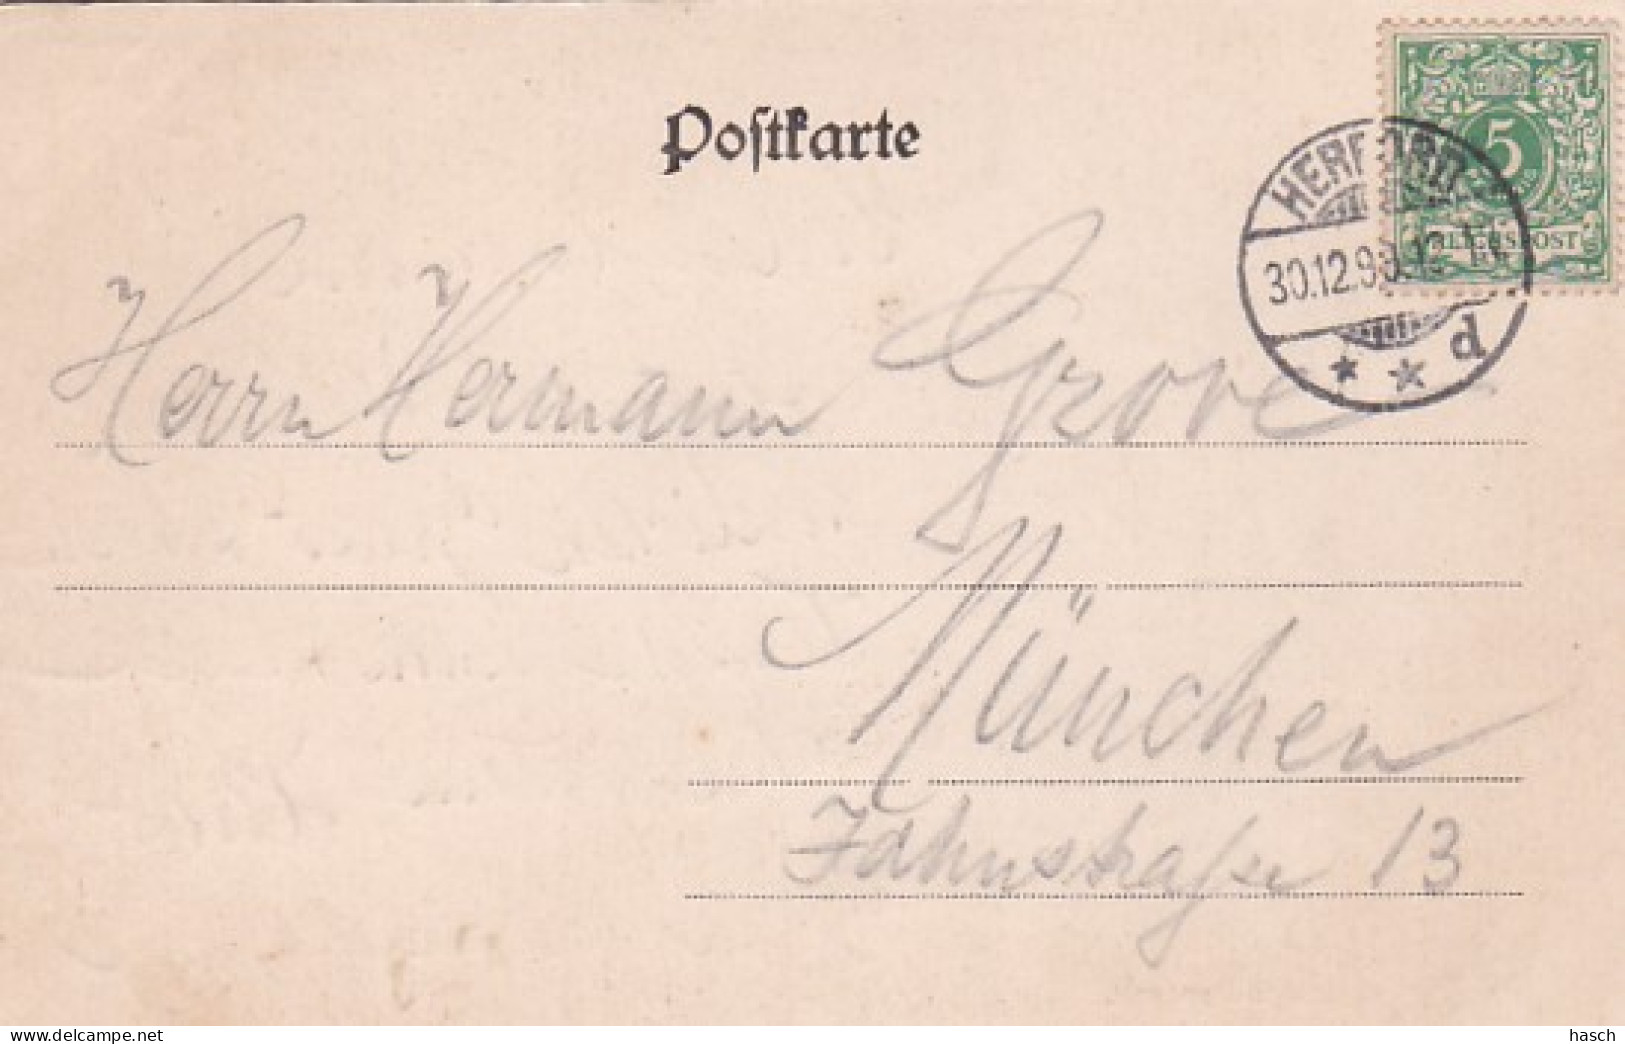 Postkarte
5
REICHSPOST
HERFORD
30.12.98.12-1N
* * d
Herrn Hermann Grove
München
Jahnstraße 13
www.delcampe.net
hasch